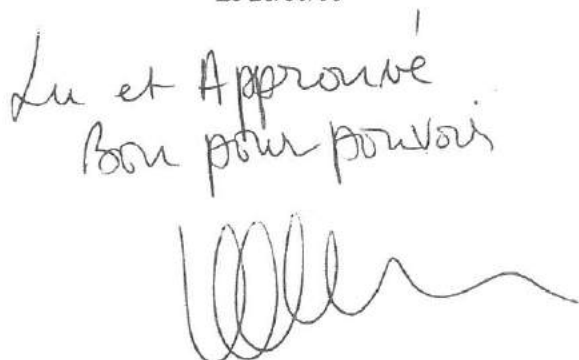 Lu et Approuvé
Bon pour pouvoir